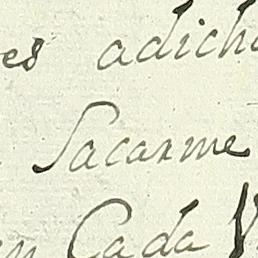 es adich
Sacarme
en Cada V